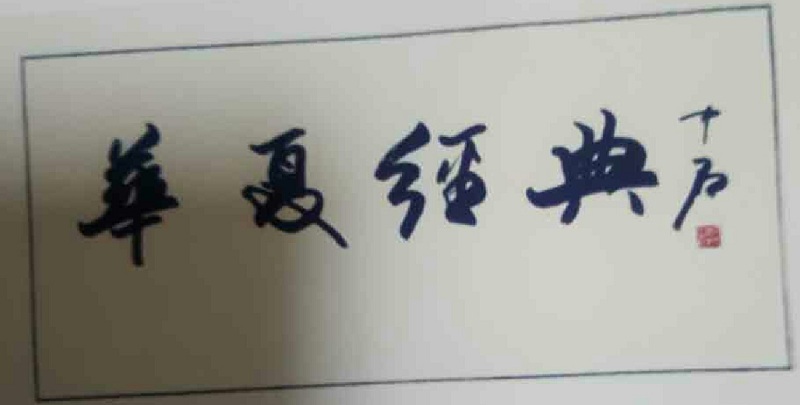 華夏經典
十石